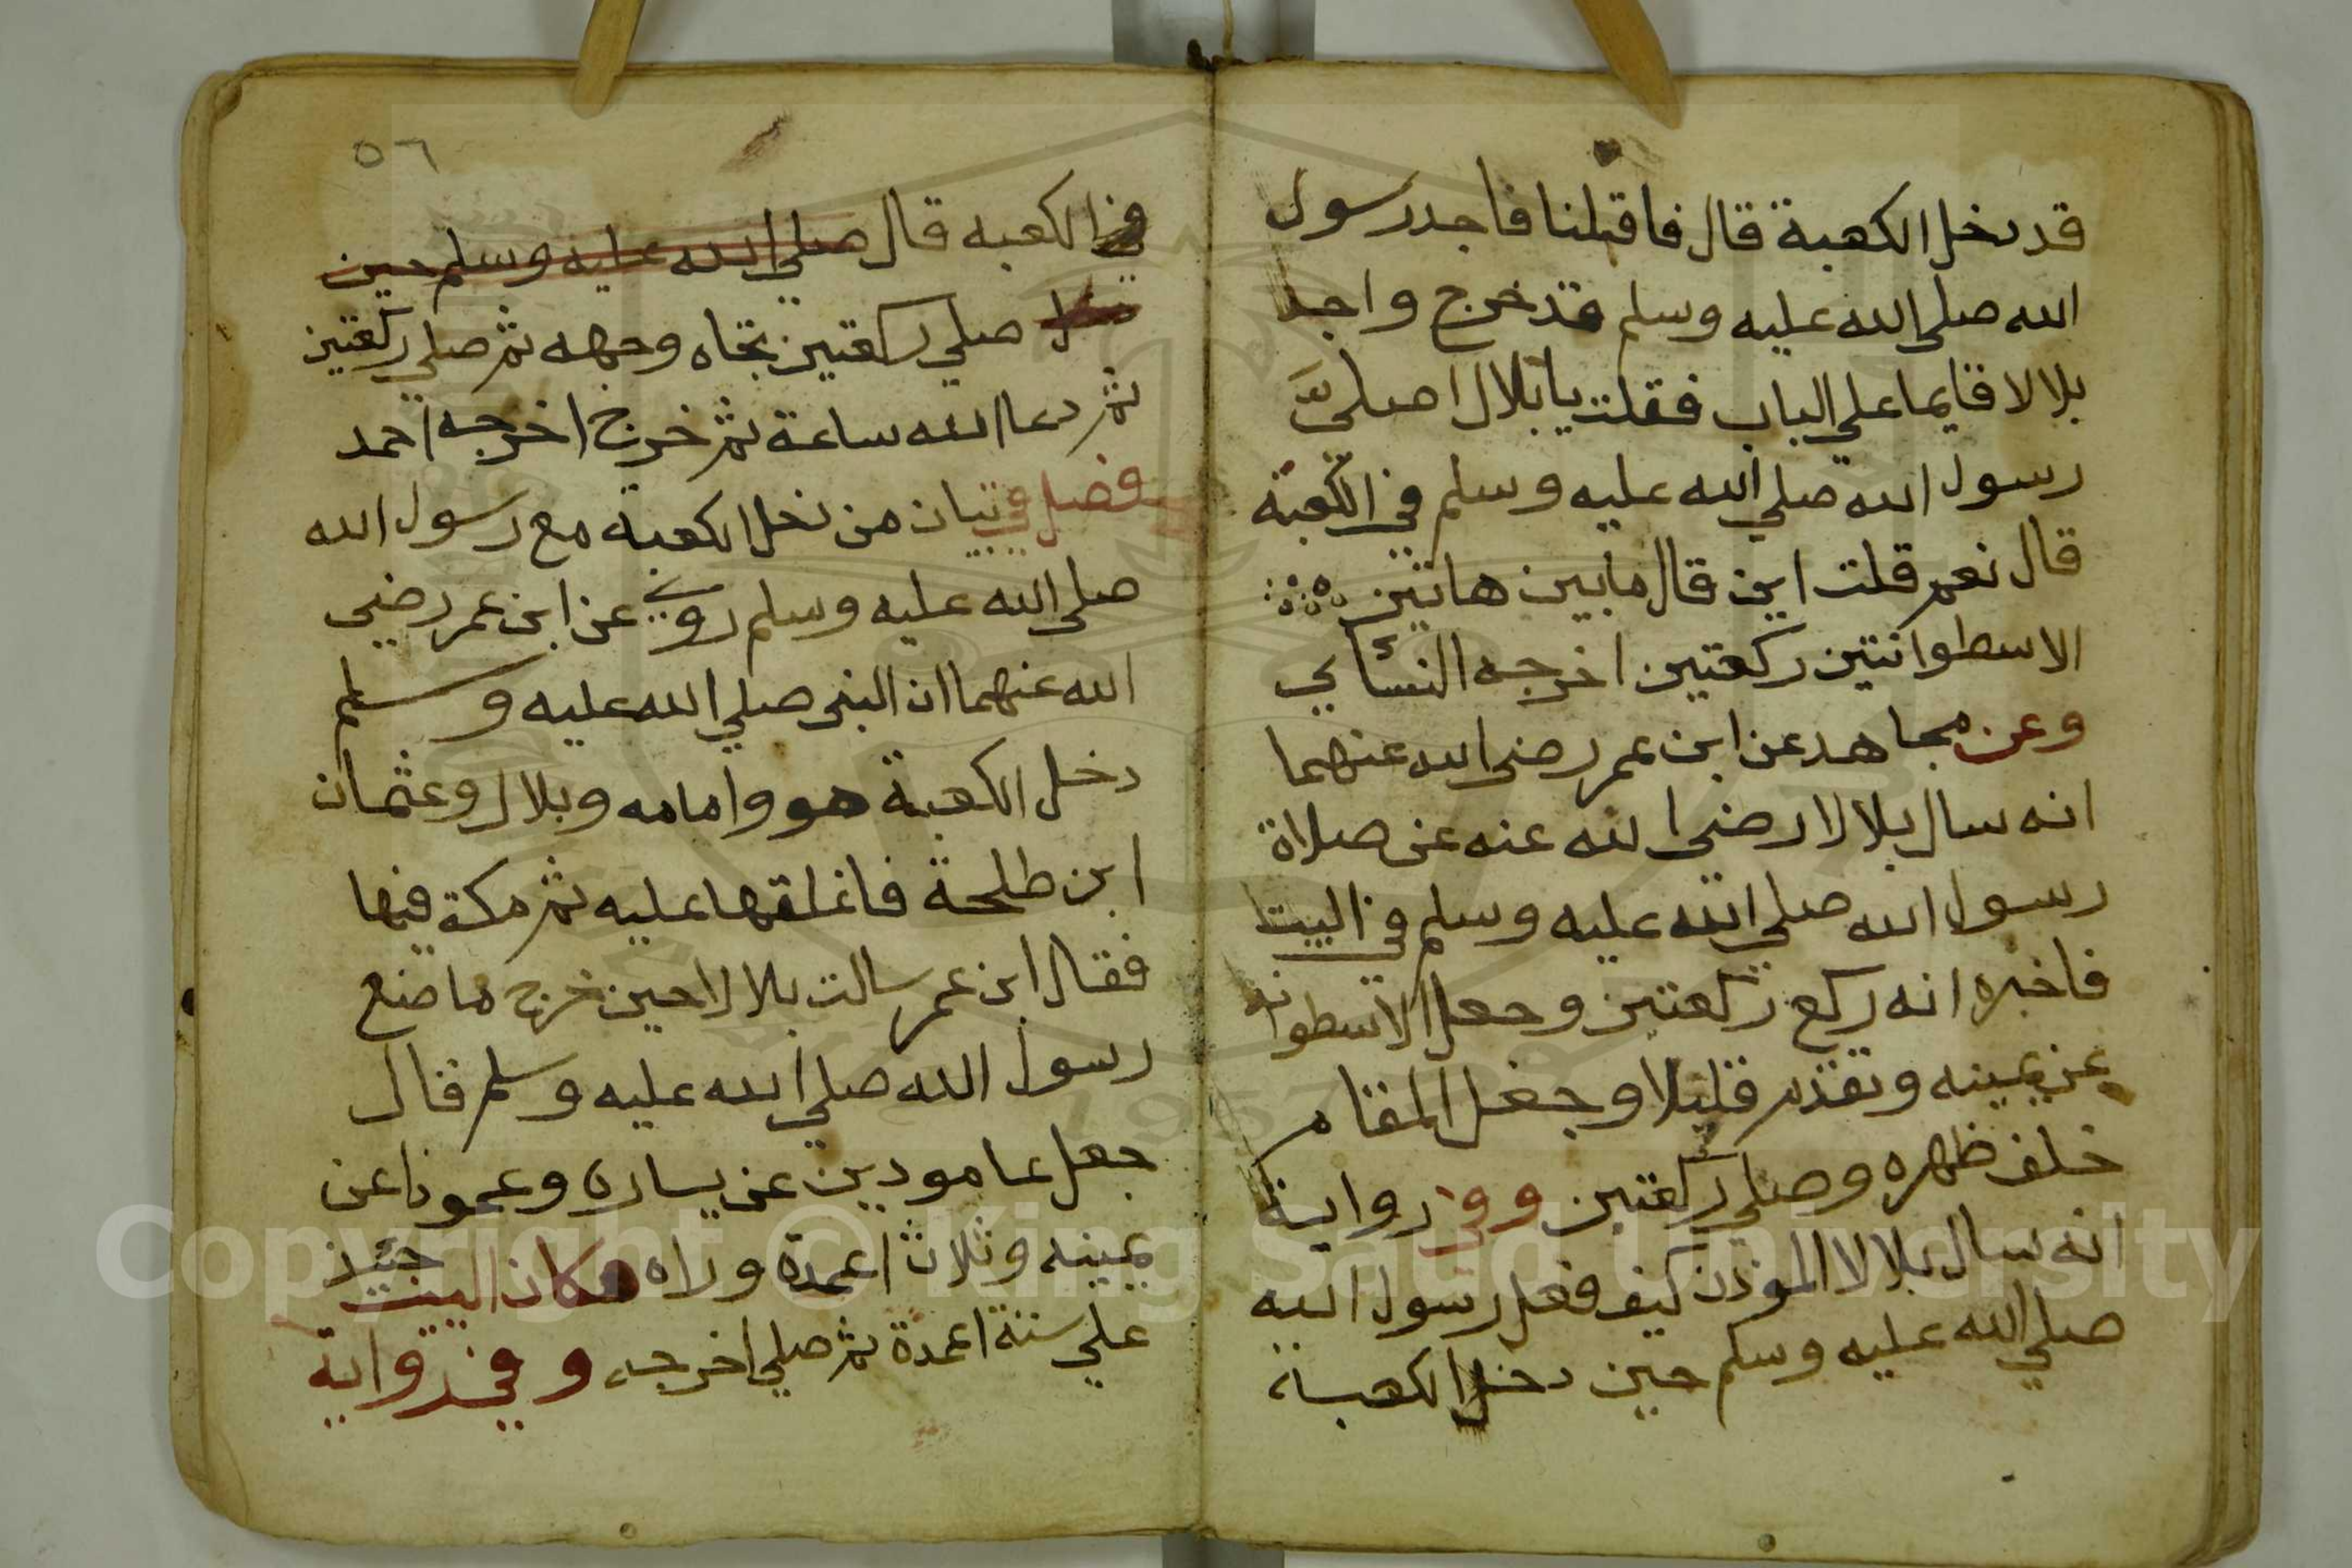 قد دخل الكعبة قال فاقبلنا فاجد رسول
الله صلي الله عليه وسلم قد خرج واجد
بلالا قايما علي الباب فقلت يا بلال اصلي
رسول الله صلي الله عليه وسلم في الكعبة
قال نعم قلت اين قال ما بين هاتين
الاسطوانتين ركعتين اخرجه النسائي
وعن مجاهد عن ابن عمر رضي الله عنهما
انه سال بلالا رضي الله عنه عن صلاة
رسول الله صلي الله عليه وسلم في البيت
فاخبره انه ركع ركعتين وجعل الاسطوانه
عن يمينه وتقدم قليلا وجعل المقام
خلف ظهره وصلي ركعتين وفي رواية
انه سال بلالا الموذن كيف فعل رسول الله
صلي الله عليه وسلم حين دخل الكعبة
٥٦
في الكعبه قال صلي الله عليه وسلم حين
صلي ركعتين تجاه وجهه ثم صلي ركعتين
ثم دعا الله ساعة ثم خرج اخرجه احمد
فصل في تبيان من دخل الكعبة مع رسول الله
صلي الله عليه وسلم روي عن ابن عمر رضي
الله عنهما ان النبي صلي الله عليه وسلم
دخل الكعبة هو وامامه وبلال وعثمان
ابن طلحة فاغلقها عليه ثم مكة فيها
فقال ابن عمر سالت بلالا حين خرج ما صنع
رسول الله صلي الله عليه وسلم قال
جعل عامودين عن يساره وعمودا عن
يمينه وثلاث اعمدة وراه وكان البيت حينئذ
علي ستة اعمدة ثم صلي اخرجه وفي رواية
Copyright © King Saud University
1957